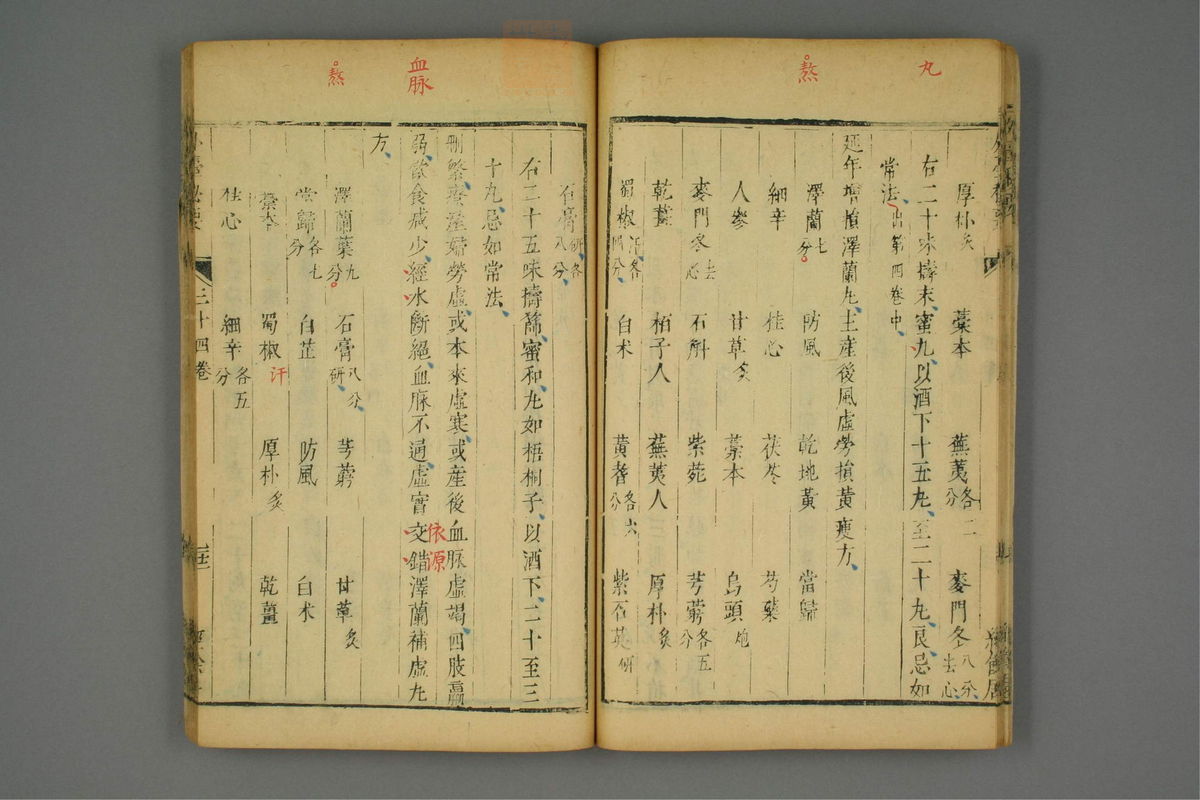 丸
熬
厚朴炙 藁本 蕪荑各二分 麥門冬八分去心
右二十味擣末蜜九以酒下十五丸至二十九良忌如
常法出第四卷中
延年增損澤蘭丸主産後風虛勞損黃瘦方
澤蘭七分 防風 乾地黃 當歸
細辛 桂心 茯苓 芍藥
人參 甘草炙 藁本 烏頭炮
麥門冬去心 石斛 紫菀 芎藭各五分
乾薑 栢子人 蕪荑人 厚朴炙
蜀椒汗各四分 白朮 黃耆各六分 紫石英研
血脉
熬
石膏研各八分
右二十五味擣篩蜜和丸如梧桐子以酒下二十至三
十丸忌如常法
刪繁療産婦勞虛或本來虛寒或産後血脈虛竭四肢羸
弱飲食减少經水斷絕血脈不通虛實交錯澤蘭補虛丸
依源
方
澤蘭葉九分 石膏八分研 芎藭 甘草炙
當歸各七分 白芷 防風 白朮
藁本 蜀椒汗 厚朴炙 乾薑
桂心 細辛各五分
三十四卷